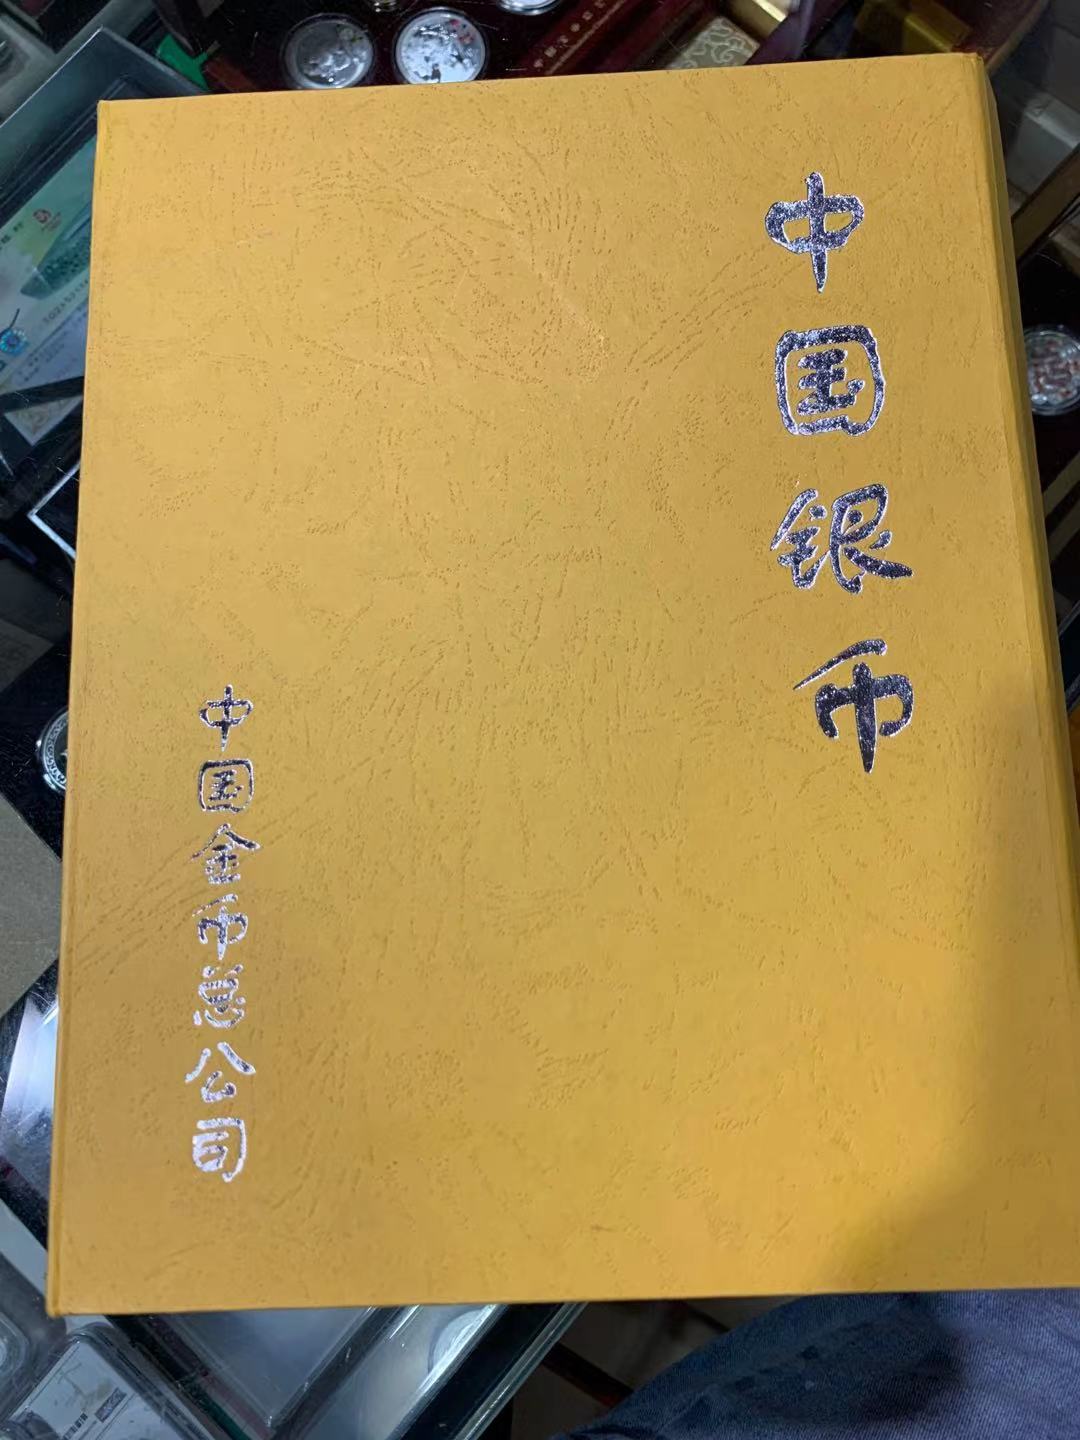 中国银币
中国金币总公司